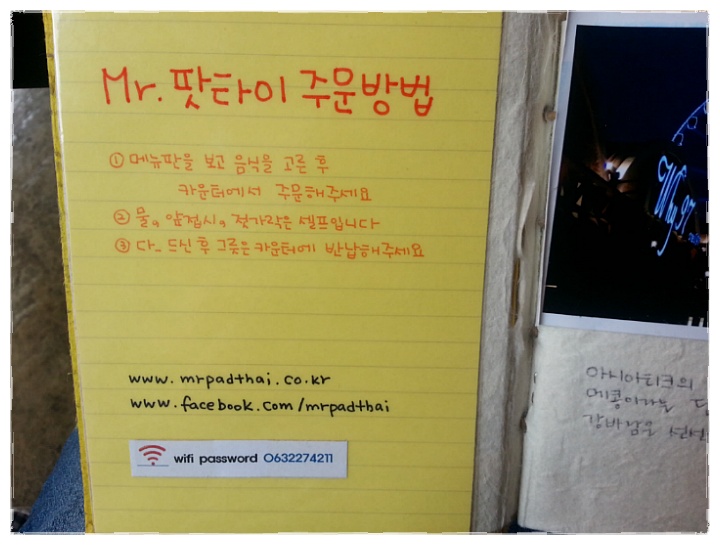 Mr. 팟타이 주문방법
① 메뉴판을 보고 음식을 고른 후
카운터에서 주문해주세요
② 물, 앞접시, 젓가락은 셀프입니다
③ 다 드신 후 그릇은 카운터에 반납해주세요
www.mrpadthai.co.kr
www.facebook.com/mrpadthai
wifi password 0632274211
아시아티크의
메콩이라는
강바람을